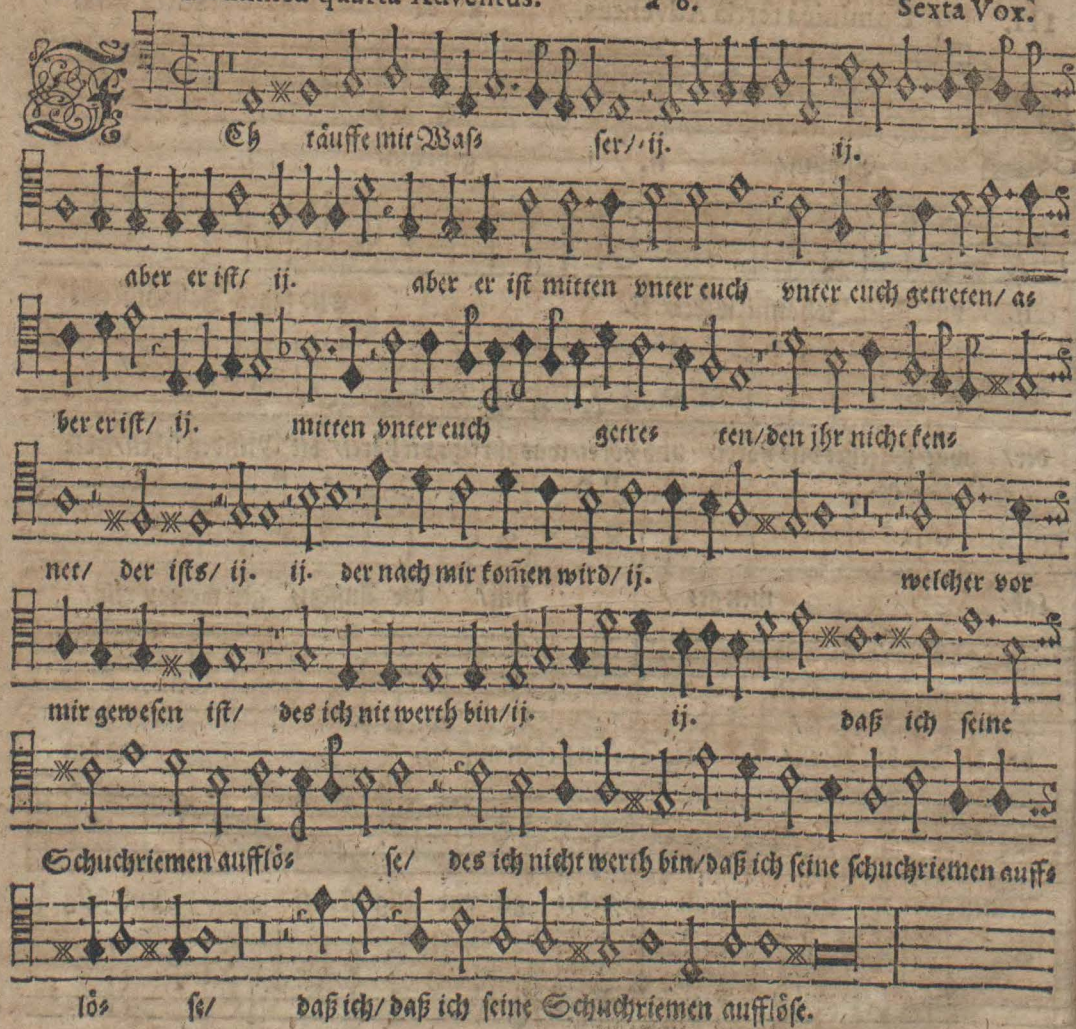 quarta Adventus. à 8. Sexta Vox.
ICh täuffe mit Was⸗ ser/ ij. ij.
aber er ist/ ij. aber er ist mitten vnter euch vnter euch getreten/ a⸗
ber er ist/ ij. mitten vnter euch getre⸗ ten/ den jhr nicht ken⸗
net/ der ists/ ij. ij. der nach mir kom̄en wird/ ij. welcher vor
mir gewesen ist/ des ich nit werth bin/ ij. ij. daß ich seine
Schuchriemen aufflö⸗ se/ des ich nicht werth bin/ daß ich seine schuchriemen auff⸗
lö⸗ se/ daß ich/ daß ich seine Schuchriemen aufflöse.